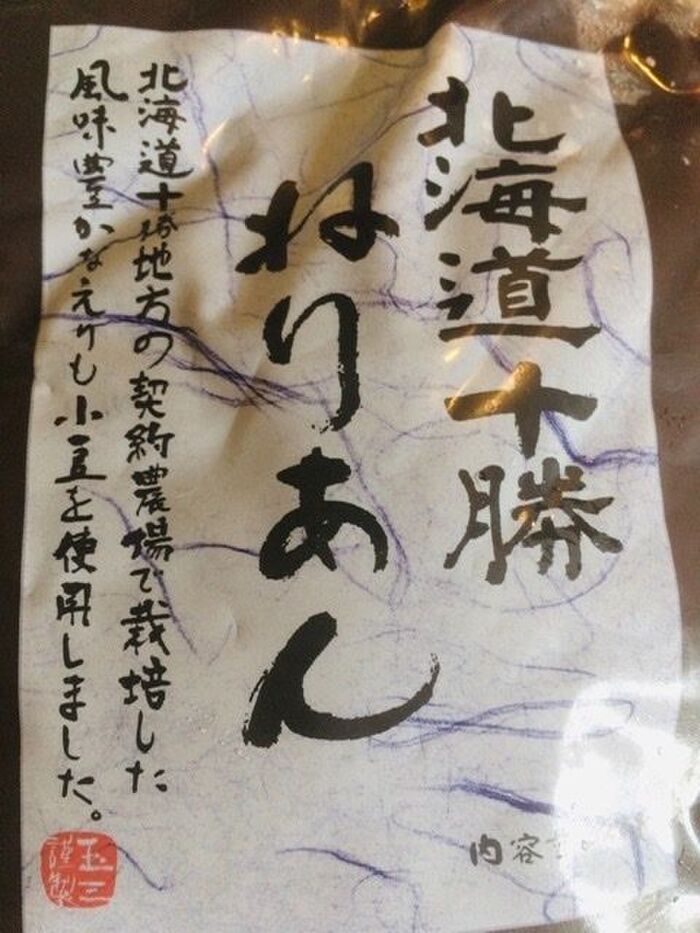 北海道十勝
ねりあん
北海道十勝地方の契約農場で栽培した
風味豊かなえりも小豆を使用しました。
玉三
謹製
内容